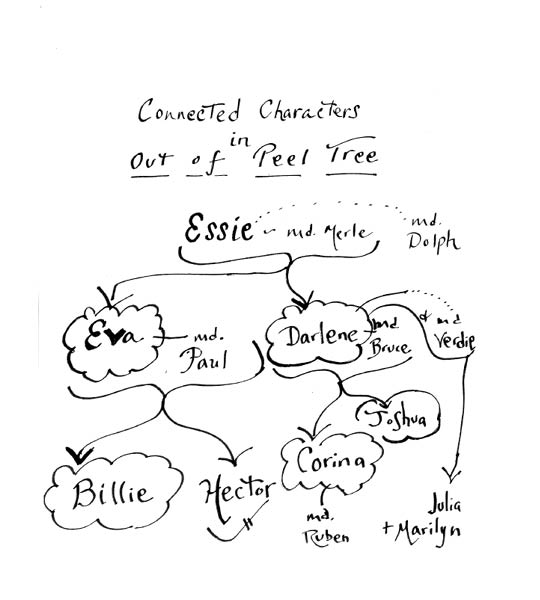 Connected Characters
in
Out of Peel Tree
Essie - md. Merle
md.
Dolph
Eva - md.
Paul
Darlene - md
Bruce
& md
Verdie
Joshua
Billie
Hector
Corina
md.
Ruben
Julia
+ Marilyn